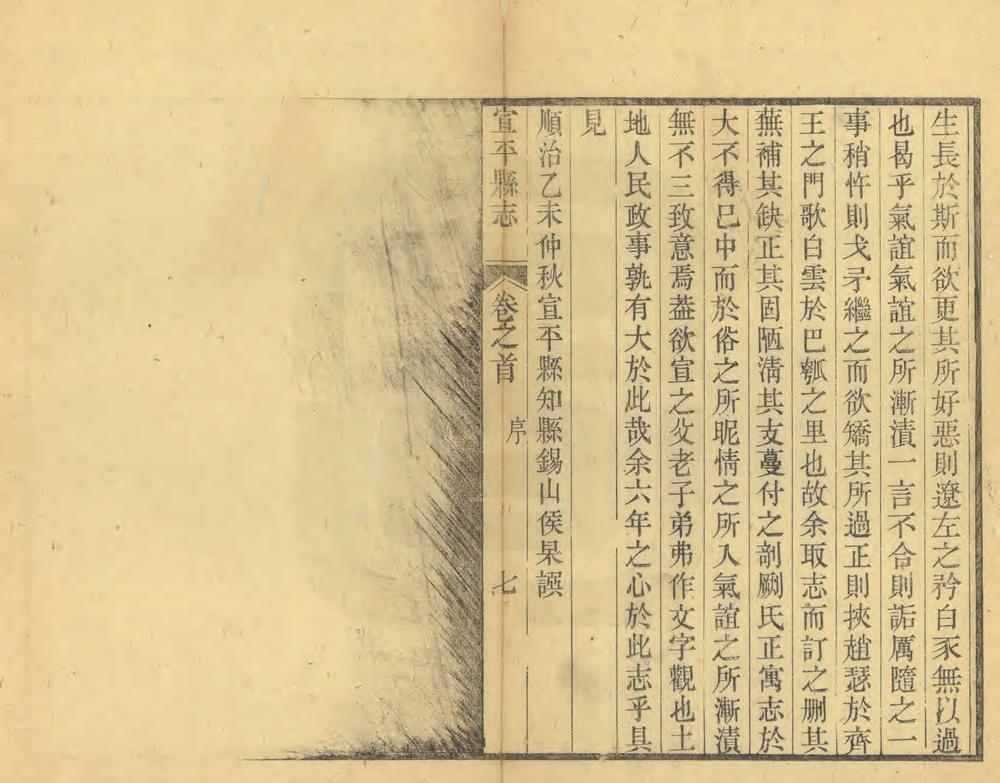 生長於斯而欲更其所好惡則遼左之矜白豕無以過
也曷乎氣誼氣誼之所漸漬一言不合則詬厲隨之一
事稍忤則戈矛繼之而欲矯其所過正則挾趙瑟於齊
王之門歌白雲於巴瓠之里也故余取志而訂之删其
蕪補其缺正其固陋淸其支蔓付之剞劂氏正寓志於
大不得已中而於俗之所昵情之所入氣誼之所漸漬
無不三致意焉葢欲宣之父老子弟弗作文字觀也土
地人民政事孰有大於此哉余六年之心於此志乎具
見
順治乙未仲秋宣平縣知縣錫山侯杲譔
宣平縣志
卷之首
序
七